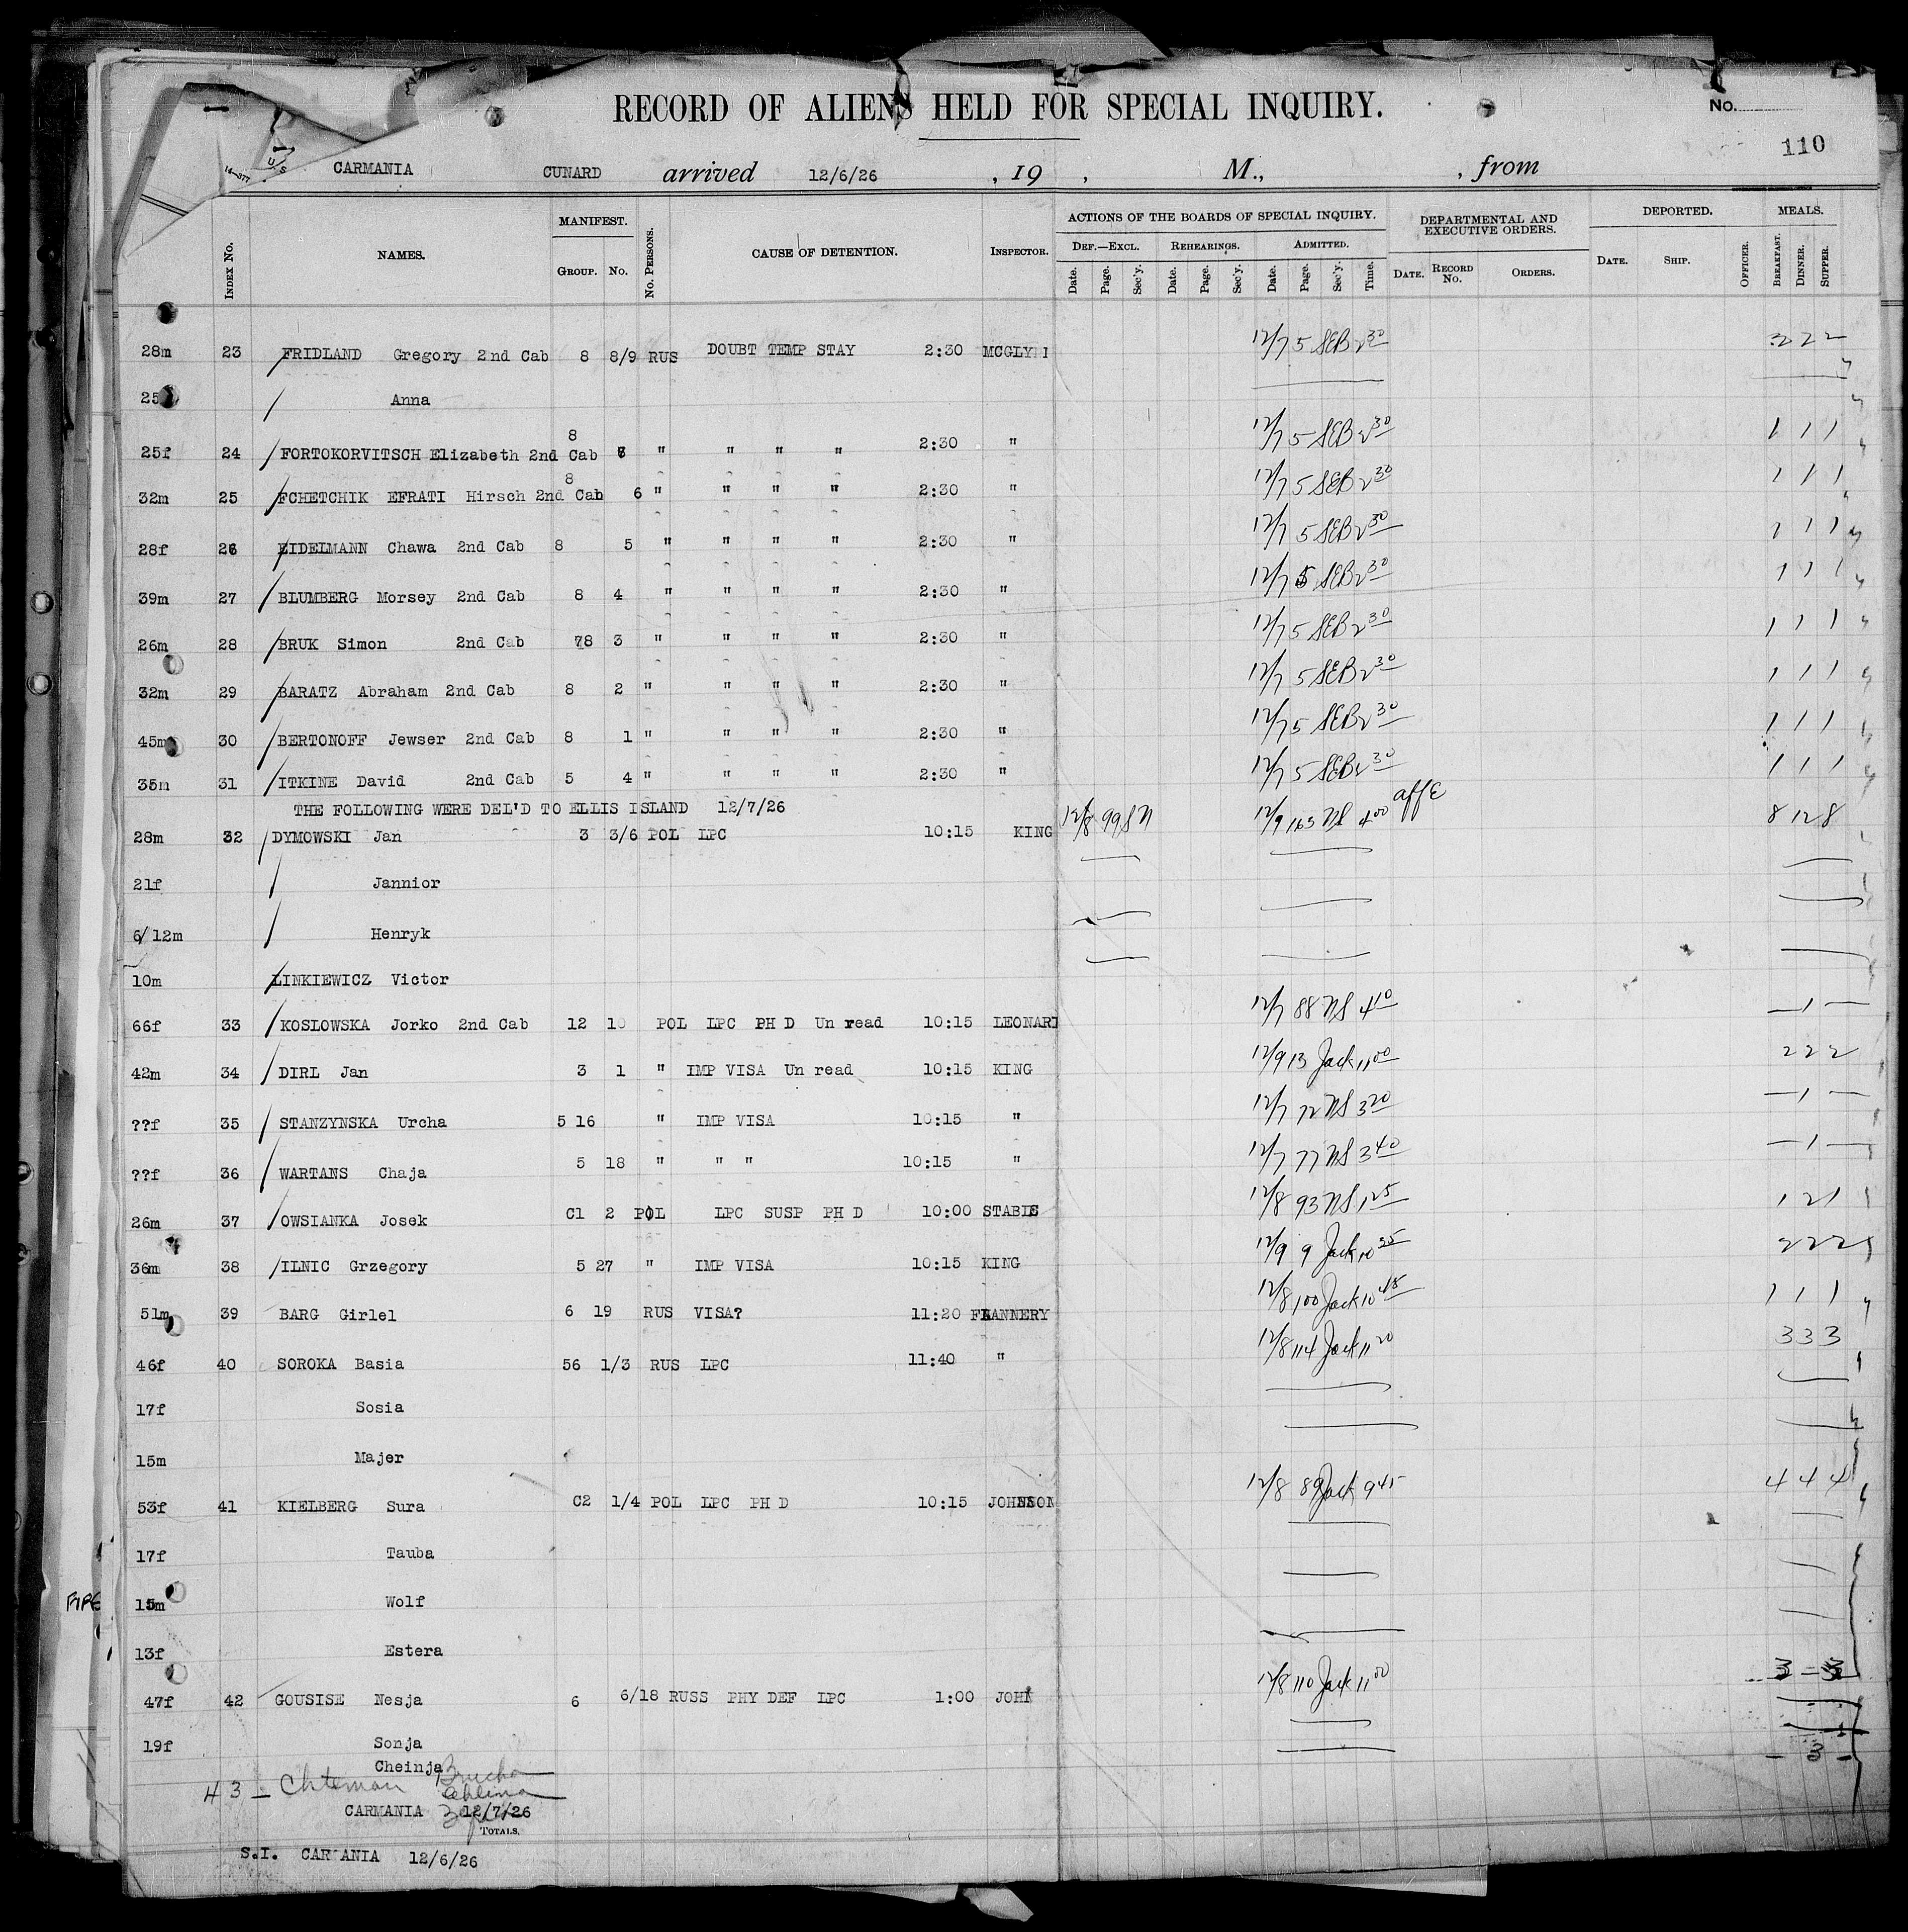 RECORD OF ALIENS HELD FOR SPECIAL INQUIRY.
No.
110
CARMANIA CUNARD arrived 12/6/26 , 19 , M., , from
INDEX No. NAMES. MANIFEST. GROUP. No. No. PERSONS. CAUSE OF DETENTION. INSPECTOR. ACTIONS OF THE BOARDS OF SPECIAL INQUIRY. DEF.—EXCL. Date. Page. Sec'y. REHEARINGS. Date. Page. Sec'y. ADMITTED. Date. Page. Sec'y. Time. DEPARTMENTAL AND EXECUTIVE ORDERS. DATE. RECORD No. ORDERS. DEPORTED. DATE. SHIP. OFFICER. MEALS. BREAKFAST. DINNER. SUPPER.
28m 23 FRIDLAND Gregory 2nd Cab 8 8/9 RUS DOUBT TEMP STAY 2:30 12/7 5 SEB 2 30 2 2 2
25 Anna
25f 24 FORTOKORVITSCH Elizabeth 2nd Cab 8 " " " " 2:30 " 12/7 5 SEB 2 30 1 1 1
32m 25 FCHETCHIK EFRATI Hirsch 2nd Cab 8 6 " " " " 2:30 " 12/7 5 SEB 2 30 1 1 1
28f 26 EIDELMANN Chawa 2nd Cab 8 5 " " " " 2:30 " 12/7 5 SEB 2 30 1 1 1
39m 27 BLUMBERG Morsey 2nd Cab 8 4 " " " " 2:30 " 12/7 5 SEB 2 30 1 1 1
26m 28 BRUK Simon 2nd Cab 78 3 " " " " 2:30 " 12/7 5 SEB 2 30 1 1 1
32m 29 BARATZ Abraham 2nd Cab 8 2 " " " " 2:30 " 12/7 5 SEB 2 30 1 1 1
45m 30 BERTONOFF Jewser 2nd Cab 8 1 " " " " 2:30 " 12/7 5 SEB 2 30 1 1 1
35m 31 ITKINE David 2nd Cab 5 4 " " " " 2:30 " 12/7 5 SEB 2 30 1 1 1
THE FOLLOWING WERE DEL'D TO ELLIS ISLAND 12/7/26
28m 32 DYMOWSKI Jan 3 3/6 POL LPC 10:15 KING 12/8 99 SN 12/9 165 NS 4 00 8 12 8
21f Jannior
6/12m Henryk
10m LINKIEWICZ Victor
66f 33 KOSLOWSKA Jorko 2nd Cab 12 10 POL LPC PH D Un read 10:15 LEONARD 12/7 88 NS 4 10 — 1 —
42m 34 DIRL Jan 3 1 " IMP VISA Un read 10:15 KING 12/9 13 Jack 11 00 2 2 2
??f 35 STANZYNSKA Urcha 5 16 " IMP VISA 10:15 " 12/7 72 NS 3 20 — 1 —
??f 36 WARTANS Chaja 5 18 " " " 10:15 " 12/7 77 NS 3 40 — 1 —
26m 37 OWSIANKA Josek C1 2 POL LPC SUSP PH D 10:00 12/8 93 NS 1 25 1 2 1
36m 38 ILNIC Grzegory 5 27 " IMP VISA 10:15 KING 12/9 9 Jack 10 35 2 2 2
51m 39 BARG Girlel 6 19 RUS VISA? 11:20 FLANNERY 12/8 100 Jack 10 45 1 1 1
46f 40 SOROKA Basia 56 1/3 RUS LPC 11:40 " 12/8 114 Jack 11 20 3 3 3
17f Sosia
15m Majer
53f 41 KIELBERG Sura C2 1/4 POL LPC PH D 10:15 JOHNSON 12/8 89 Jack 9 45 4 4 4
17f Tauba
15m Wolf
13f Estera
47f 42 GOUSISE Nesja 6 6/18 RUSS PHY DEF LPC 1:00 JOHN 12/8 110 Jack 11 00 3 — 3
19f Sonja
Cheinja — 3 —
43 — Chteman
CARMANIA 12/7/26
TOTALS.
S.I. CARMANIA 12/6/26